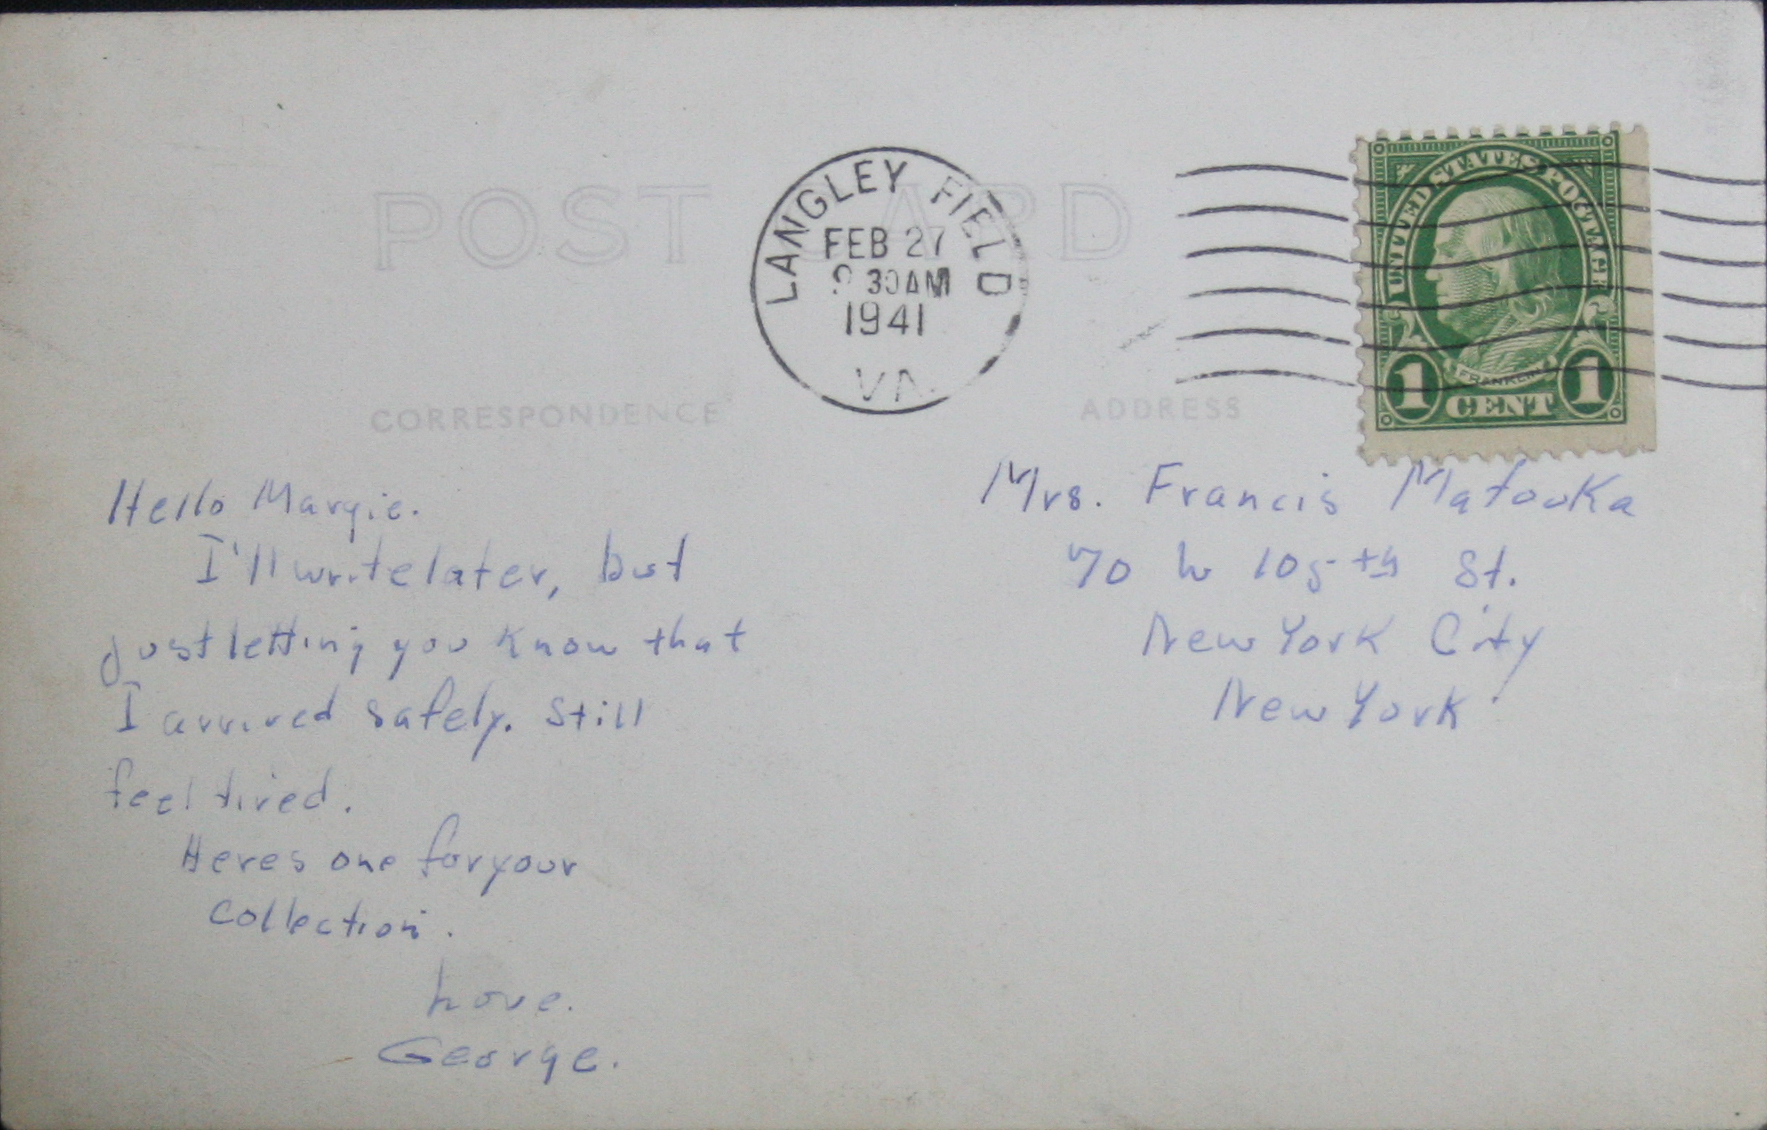 POST CARD
LANGLEY FIELD
FEB 27
30AM
1941
VA.
UNITED STATES POSTAGE
FRANKLIN
1 CENT 1
CORRESPONDENCE
ADDRESS
Hello Margie.
I'll write later, but
just letting you know that
I arrived safely. Still
feel tired.
Heres one for your
collection.
Love.
George.
Mrs. Francis Matouka
70 W 105th St.
New York City
New York